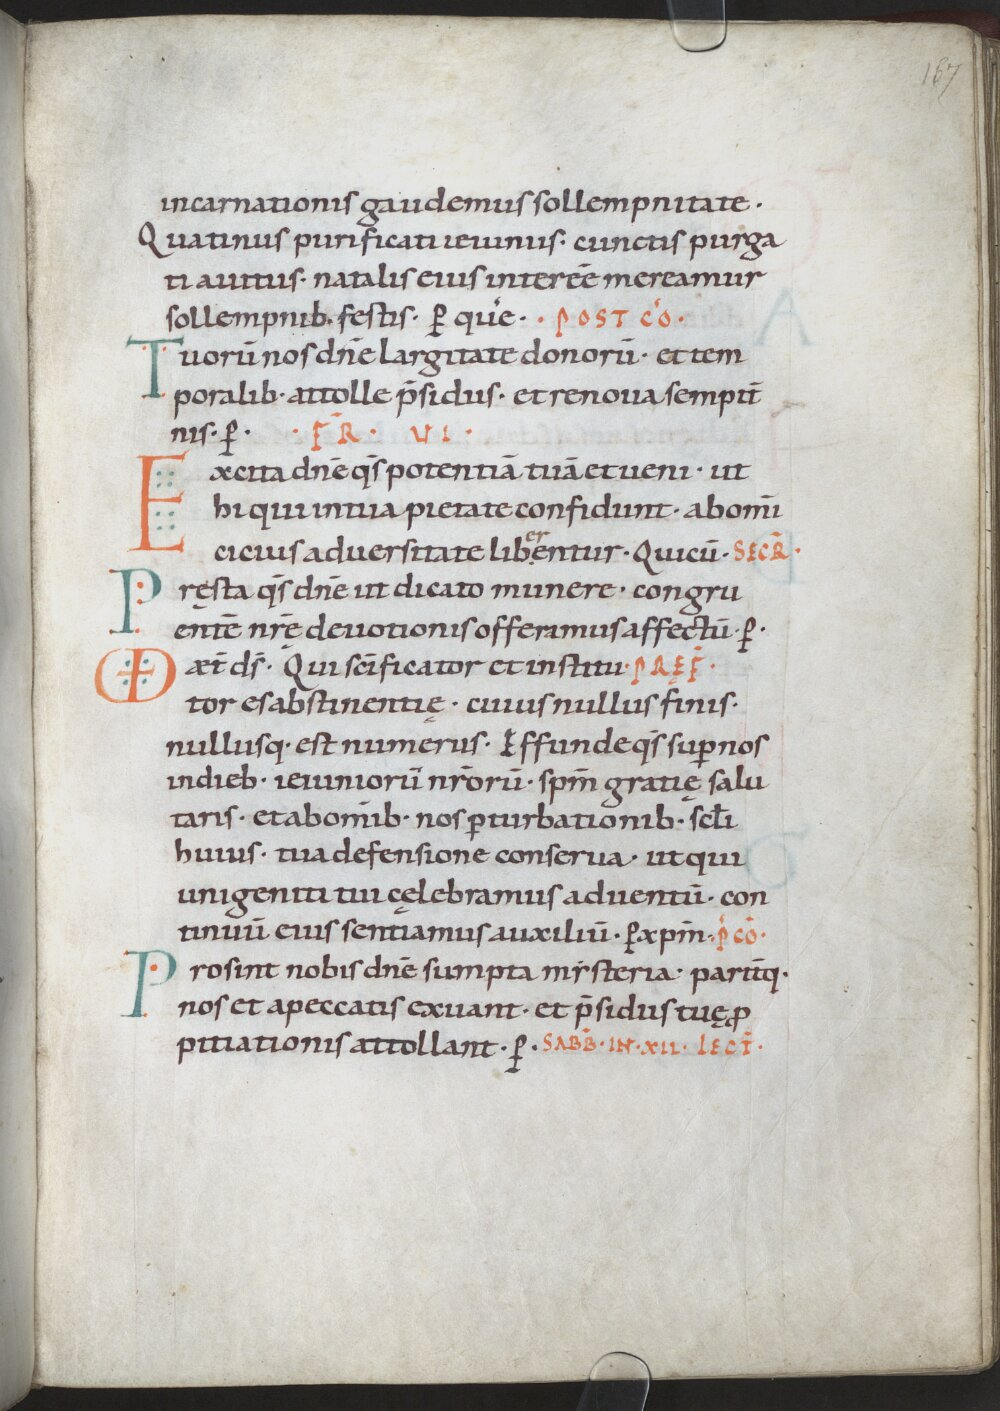 167
incarnationis gaudemus sollempnitate.
Quatinus purificati ieiunus· cunctis purga
ti a uitiis· natalis eius interēē mereamur
sollempnib. festis· ꝑ que· · POST CO·
Tuorū nos dn̄e largitate donorū· et tem
poralib· attolle p̄sidiis· et renoua sempit̄
nis· ꝑ· · FR̄ · VI ·
Excita dn̄e q̄s potentiā tuā et ueni· ut
hi qui in tua pietate confidunt· ab om̄i
cicius aduersitate liberentur· Qui cū· SECR̄·
Pręsta q̄s dn̄e ut dicato munere· congru
entē nr̄ę deuotionis offeramus affectū· ꝑ·
VD æt̄ dſ̄· Qui sc̄ificator et institu· PRĘF̄·
tor es abstinentię· cuius nullus finis·
nullusq· est numerus· Effunde q̄s sup̄ nos
in dieb· ieiuniorū nr̄orū· spm̄ gratię salu
taris· et ab om̄ib· nos ꝑturbationib· scł̄i
huius· tua defensione conserua· ut qui
unigeniti tui cęlebramus aduentū· con
tinuū eius sentiamus auxiliū· ꝑ xpm̄· P CO̅·
Prosint nobis dn̄e sumpta mysteria· parit̄q·
nos et a peccatis exuant· et p̄sidiis tuę ꝓ
pitiationis attollant· ꝑ· SABB̄· IN· XII· LECT̄·